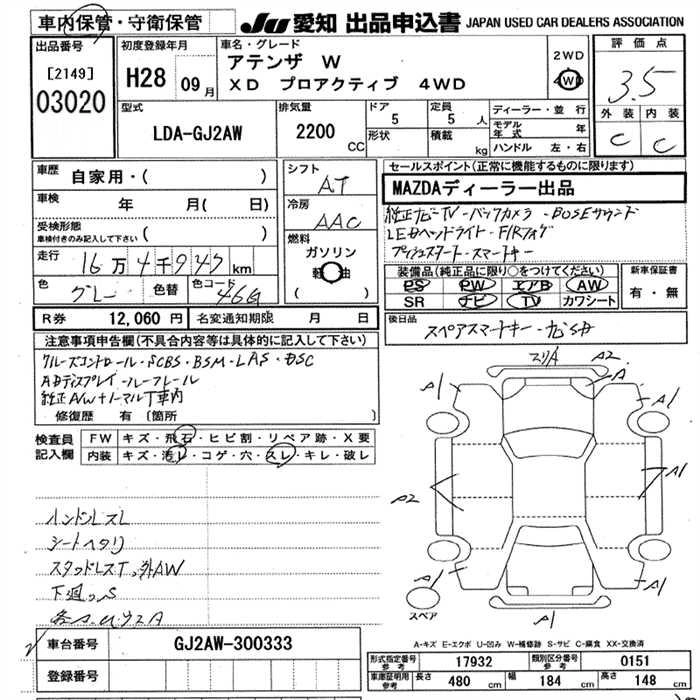 車内保管・守衛保管
JU 愛知 出品申込書 JAPAN USED CAR DEALERS ASSOCIATION
出品番号
[2149]
03020
初度登録年月
H28 09月
車名・グレード
アテンザ W
XD プロアクティブ 4WD
2WD
4WD
評価点
3.5
外装 内装
C C
型式
LDA-GJ2AW
排気量
2200 CC
ドア
5
形状
定員
5 人
積載
kg
ディーラー・並行
モデル年式 年
ハンドル 左・右
車歴
自家用・( )
車検
年 月( 日)
受検形態
車検付きのみ記入して下さい ( )
走行
16万4千947km
色
グレー
色替
色コード
46G
シフト
AT
冷房
AAC
燃料
ガソリン
軽油
( )
セールスポイント(正常に機能するものに限ります)
MAZDAディーラー出品
純正ナビTV-バックカメラ-BOSEサウンド
LEDヘッドライト-F/Rフォグ
プッシュスタート-スマートキー
装備品(純正品に限り○をつけてください)
PS PW エアB AW
SR ナビ TV カワシート
新車保証書
有・無
R券 12,060円 名変通知期限 月 日
後日品
スペアスマートキー-ナビSD
注意事項申告欄(不具合内容等は具体的に記入して下さい)
クルーズコントロール-SCBS-BSM-LAS-DSC
ADディスプレイ-ルーフレール
純正A/W+ノーマルT車内
修復歴 有(箇所 )
検査員記入欄
FW キズ・飛石・ヒビ割・リペア跡・X要
内装 キズ・汚レ・コゲ・穴・スレ・キレ・破レ
ハンドルスレ
シートヘタリ
スタッドレスT、外AW
下廻っS
スリA A2
A
A1 A1
A2 A1
A1 A1
スペア
A1
A-キズ E-エクボ U-凹み W-補修跡 S-サビ C-腐食 XX-交換済
車台番号 GJ2AW-300333
登録番号
形式指定番号 参考 17932 類別区分番号 参考 0151
車庫証明用 参考 長さ 480 cm 幅 184 cm 高さ 148 cm